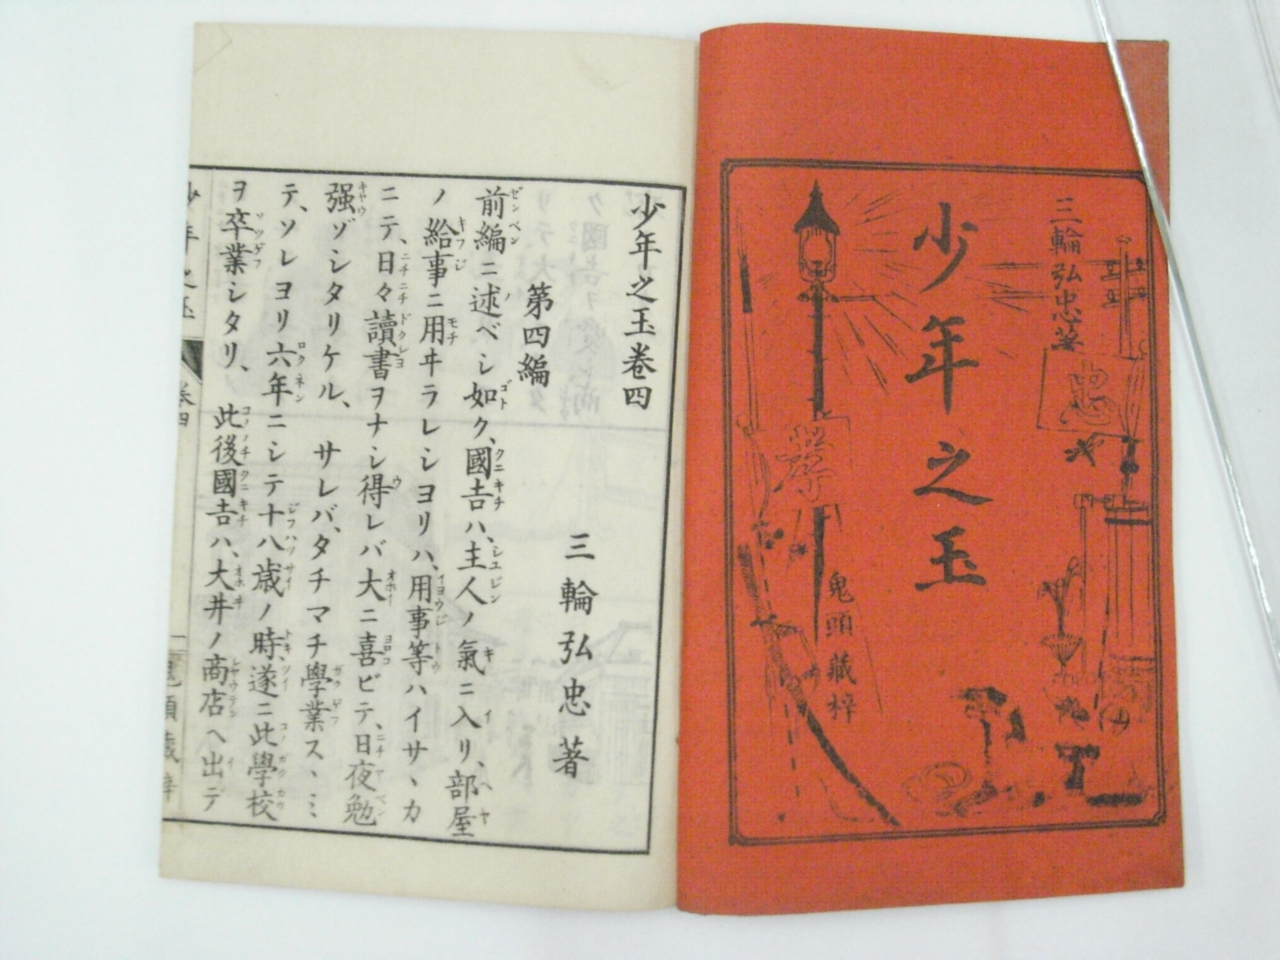 三輪弘忠著
少年之玉
鬼頭藏梓
忠
孝
少年之玉卷四
第四編
三輪弘忠著
前編ニ述ベシ如ク、國吉ハ、主人ノ氣ニ入リ、部屋
ノ給事ニ用ヰラレショリハ、用事等ハイサヽカ
ニテ、日々讀書ヲナシ得レバ大ニ喜ビテ、日夜勉
强ゾシタリケル、サレバ、タチマチ學業スヽミ
テ、ソレヨリ六年ニシテ十八歳ノ時遂ニ此學校
ヲ卒業シタリ、此後國吉ハ、大井ノ商店ヘ出デ
少年之玉
卷四
鬼頭藏梓